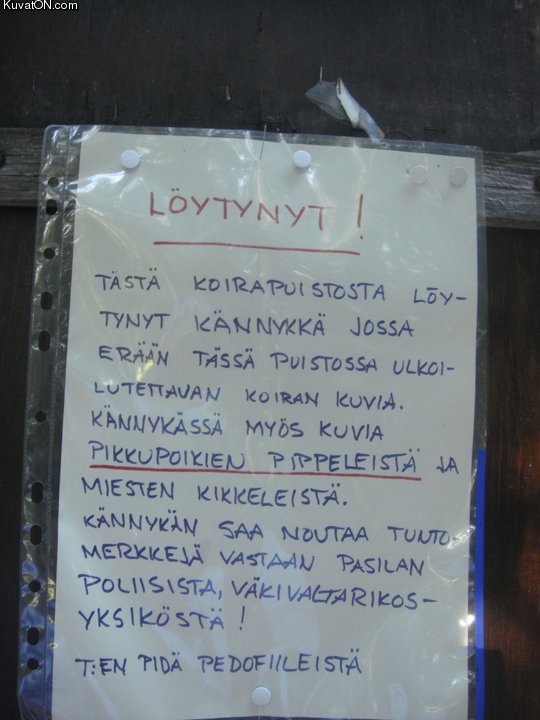 KuvatON.com
LÖYTYNYT!
TÄSTÄ KOIRAPUISTOSTA LÖY-
TYNYT KÄNNYKKÄ JOSSA
ERÄÄN TÄSSÄ PUISTOSSA ULKOI-
LUTETTAVAN KOIRAN KUVIA.
KÄNNYKÄSSÄ MYÖS KUVIA
PIKKUPOIKIEN PIPPELEISTÄ JA
MIESTEN KIKKELEISTÄ.
KÄNNYKÄN SAA NOUTAA TUNTO-
MERKKEJÄ VASTAAN PASILAN
POLIISISTA, VÄKIVALTARIKOS-
YKSIKÖSTÄ!
T:EN PIDÄ PEDOFIILEISTÄ